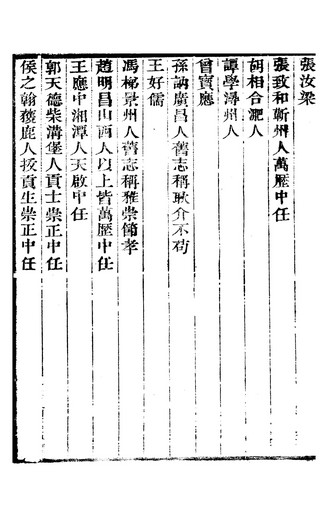 張汝梁
張致和蘄州人萬歷中任
胡相合淝人
譚學潯州人
曾寳應
孫訥廣昌人舊志稱耿介不苟
王好儒
馮梛景州人舊志稱雅崇節孝
趙明昌山西人以上皆萬歷中任
王應中湘潭人天啟中任
郭天德柴溝堡人貢士崇正中任
侯之翰獲鹿人拔貢生崇正中任